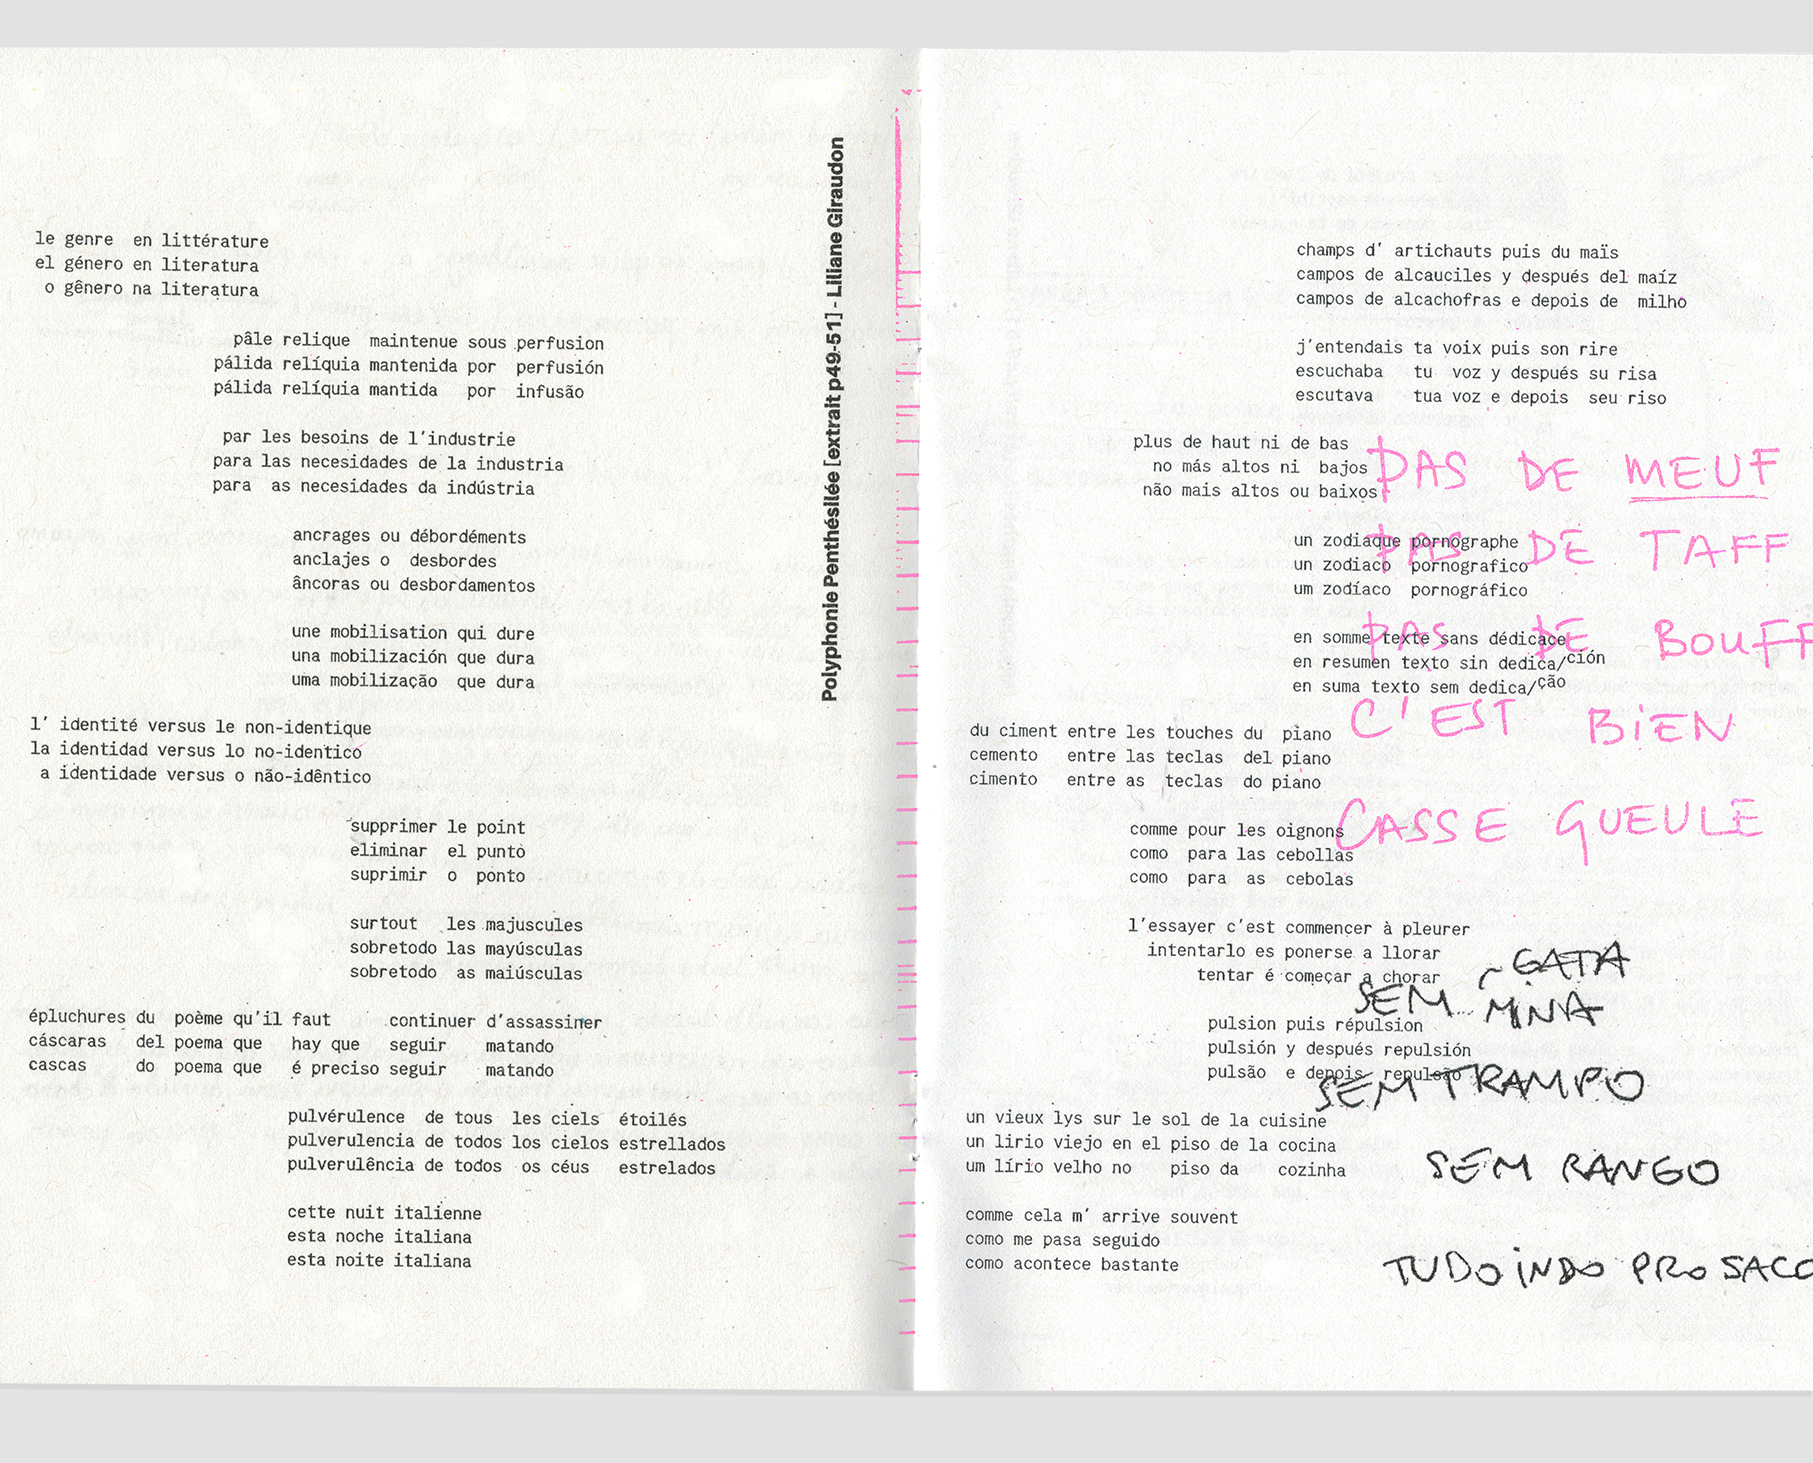 le genre en littérature
el género en literatura
o gênero na literatura
pâle relique maintenue sous perfusion
pálida relíquia mantenida por perfusión
pálida relíquia mantida por infusão
par les besoins de l'industrie
para las necesidades de la industria
para as necesidades da indústria
ancrages ou débordéments
anclajes o desbordes
âncoras ou desbordamentos
une mobilisation qui dure
una mobilización que dura
uma mobilização que dura
l' identité versus le non-identique
la identidad versus lo no-identico
a identidade versus o não-idêntico
supprimer le point
eliminar el punto
suprimir o ponto
surtout les majuscules
sobretodo las mayúsculas
sobretodo as maiúsculas
épluchures du poème qu'il faut continuer d'assassiner
cáscaras del poema que hay que seguir matando
cascas do poema que é preciso seguir matando
pulvérulence de tous les ciels étoilés
pulverulencia de todos los cielos estrellados
pulverulência de todos os céus estrelados
cette nuit italienne
esta noche italiana
esta noite italiana
Polyphonie Penthésilée [extrait p49-51] - Liliane Giraudon
champs d' artichauts puis du maïs
campos de alcauciles y después del maíz
campos de alcachofras e depois de milho
j'entendais ta voix puis son rire
escuchaba tu voz y después su risa
escutava tua voz e depois seu riso
plus de haut ni de bas
no más altos ni bajos
não mais altos ou baixos
PAS DE MEUF
un zodiaque pornographe
un zodiaco pornografico
um zodíaco pornográfico
PAS DE TAFF
en somme texte sans dédicace
en resumen texto sin dedica/ción
en suma texto sem dedica/ção
PAS DE BOUFF
C'EST BIEN
du ciment entre les touches du piano
cemento entre las teclas del piano
cimento entre as teclas do piano
CASSE GUEULE
comme pour les oignons
como para las cebollas
como para as cebolas
l'essayer c'est commencer à pleurer
intentarlo es ponerse a llorar
tentar é começar a chorar
GATA
SEM MINA
pulsion puis répulsion
pulsión y después repulsión
pulsão e depois repulsão
SEM TRAMPO
un vieux lys sur le sol de la cuisine
un lirio viejo en el piso de la cocina
um lírio velho no piso da cozinha
SEM RANGO
comme cela m' arrive souvent
como me pasa seguido
como acontece bastante
TUDO INDO PRO SACO